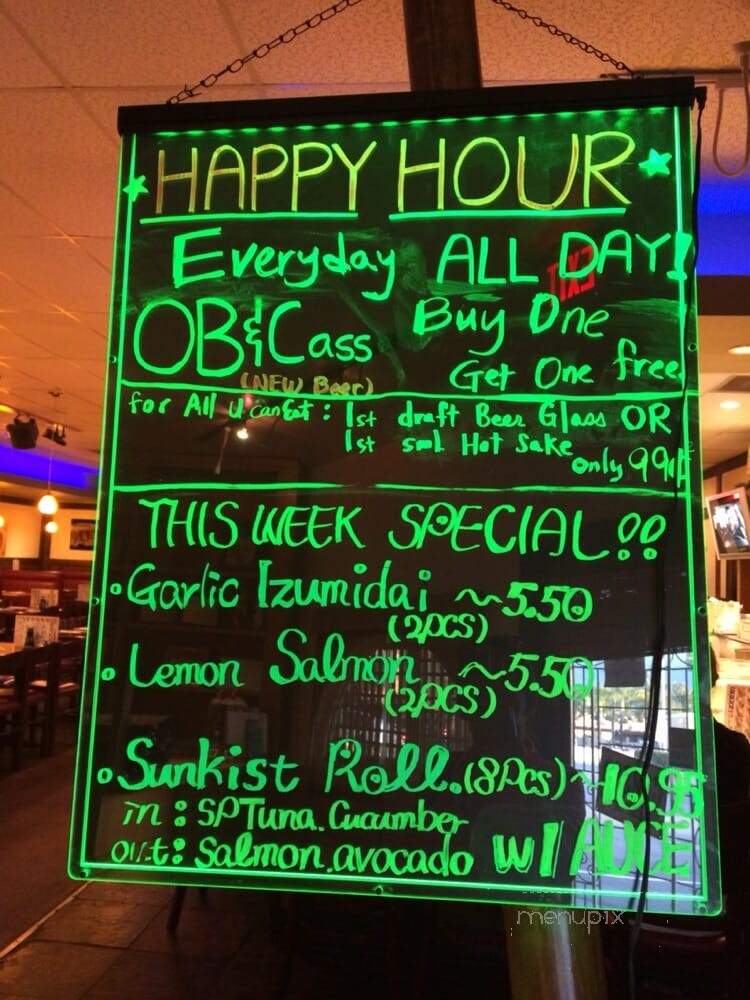 HAPPY HOUR
Everyday ALL DAY!
OB & Cass
(NEW Beer)
Buy One
Get One free
for All u can Eat : 1st draft Beer Glass OR
1st sml Hot Sake
only 99¢
THIS WEEK SPECIAL!!
Garlic Izumidai ~5.50
(2pcs)
Lemon Salmon ~5.50
(2pcs)
Sunkist Roll. (8pcs) ~10.95
in : SPTuna. Cucumber
out : Salmon. avocado W/
EXIT
menupix